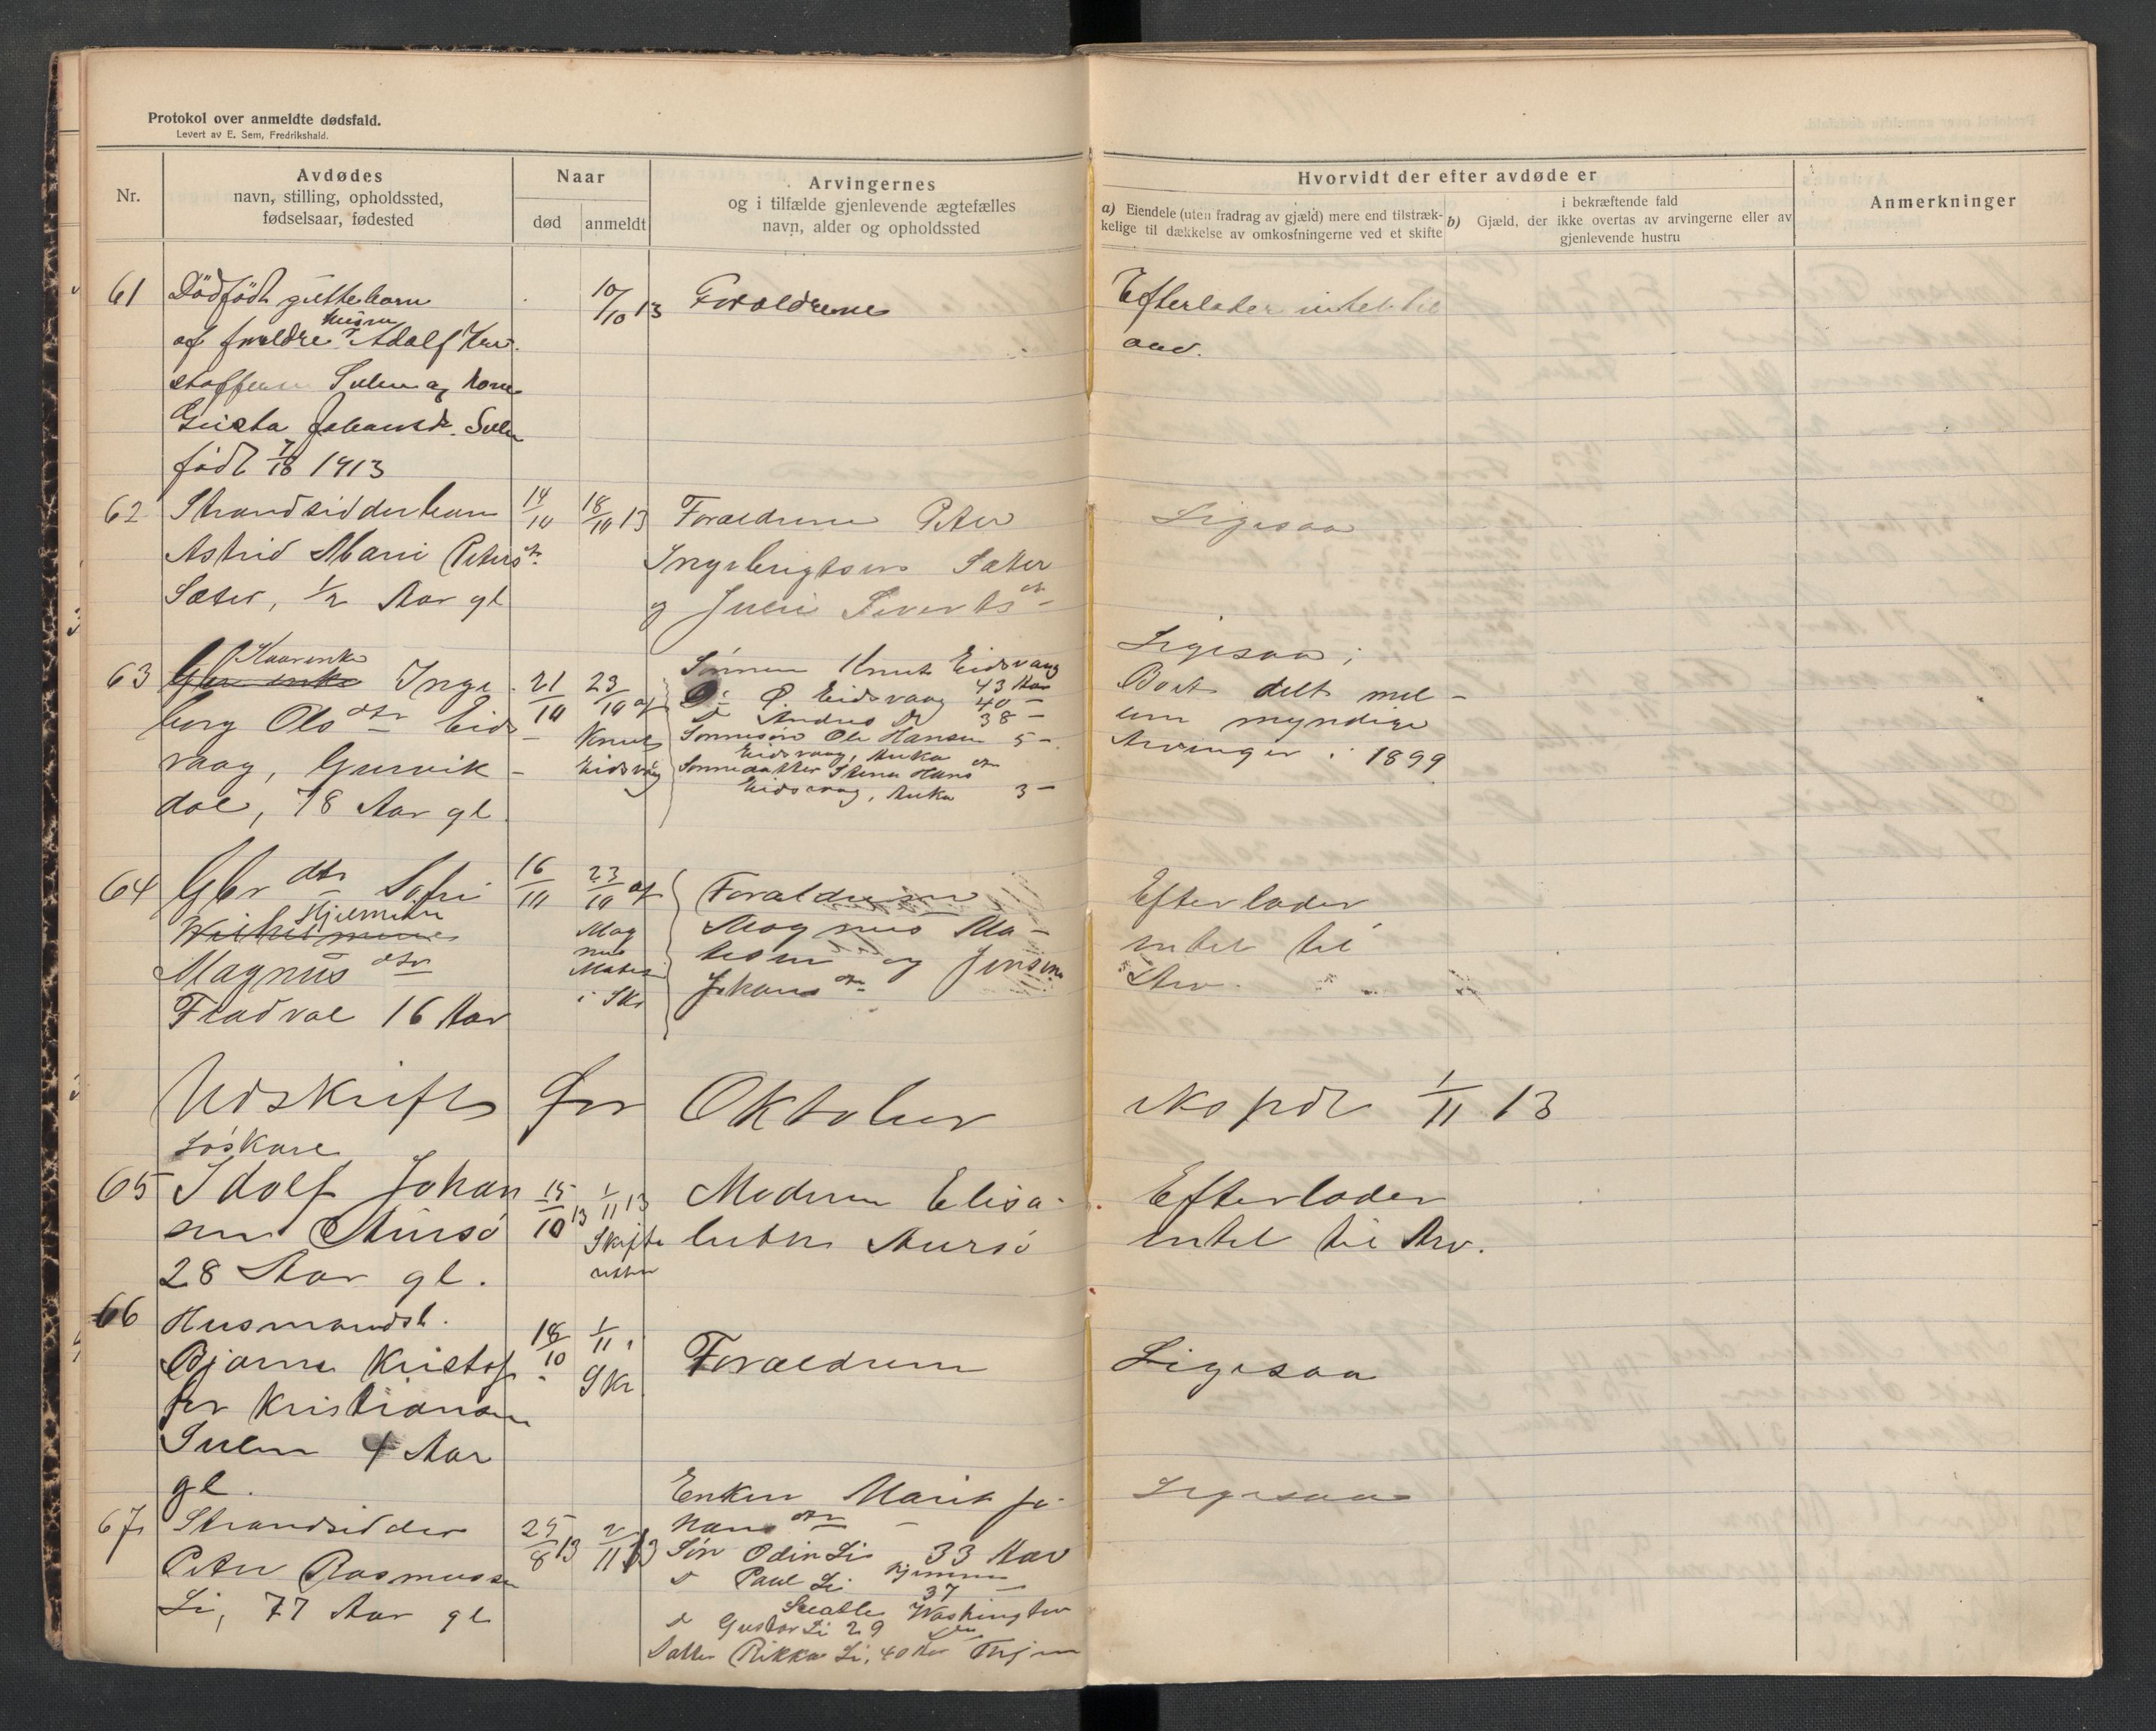 Protokol over anmeldte dødsfald.
Levert av E. Sem, Fredrikshald.
Nr.
Avdødes
navn, stilling, opholdssted,
fødselsaar, fødested
Naar
død
anmeldt
Arvingernes
og i tilfælde gjenlevende ægtefælles
navn, alder og opholdssted
Hvorvidt der efter avdøde er
a) Eiendele (uten fradrag av gjæld) mere end tilstræk-
kelige til dækkelse av omkostningerne ved et skifte
i bekræftende fald
b) Gjæld, der ikke overtas av arvingerne eller av
gjenlevende hustru
Anmerkninger
61 Dödfödt guttebarn 10/10 13 Forældrene Efterlader intet til
af forældre Adolf arv.
Sulen og kone
Johansdr. Sulen
født 7/10 1913
62 Strandsidderbarn 14/10 18/10 13 Forældrene Peter Ligesaa
Astrid Marie Petersdtr. Ingebrigtsen Sæter
Sæter, 1/2 Aar gl og Julie Sivertsdtr
63 Kaarenke Inge 21/10 23/10 af Sønnen Knut Eidsvaag 43 Aar Ligesaa;
borg Olsdtr Eids- Knut Eidsvåg Do P. Eidsvaag 40 - Boet delt mel-
vaag, Gursvik- D Andres Do 38 - lem myndige
dal, 78 Aar gl. Sønnesøn Ole Hansen 5 - Arvinger i 1899
Eidsvaag,
Sønnedatter Stina Hansdtr
Eidsvaag, 3 -
64 Gbrdtr Sofie 16/10 23/10 af Forældrene Efterlader
Hjelmine Magnus Magnus Ma- intet til
Magnusdtr i Skr tesen og Jensine Arv.
Fladval 16 Aar Johansdtr
Udskrift for Oktober exped 1/11 13
Løskarl
65 Idolf Johan 15/10 13 1/11 13 Moderen Elisa- Efterlader
sen Aursö Skifte retten beth Aursö intet til Arv.
28 Aar gl.
66 Husmandsb. 18/10 1/11 i Skr Forældrene Ligesaa
Bjarne Kristof
fer Kristiansen
Sulen 4 Aar
gl.
67 Strandsidder 25/8 13 2/11 13 Enken Marit Jo- Ligesaa
Peter Rasmussen hansdtr
Li, 77 Aar gl Søn Odin Li 33 Aar
Hjemme
D Paul Li 37 -
Seattle Washington
D Gustav Li 29
Datter Rikka Li, 40 Aar